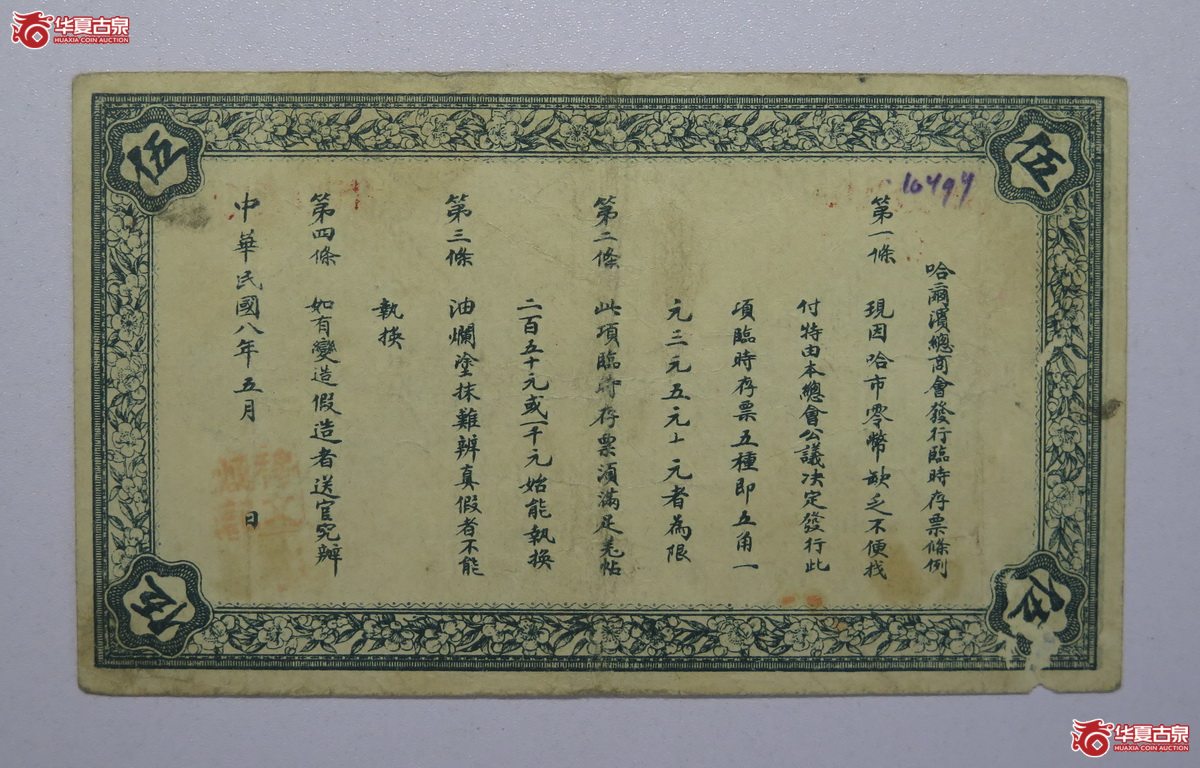 华夏古泉
HUAXIA COIN AUCTION
伍
伍
10494
哈爾濱總商會發行臨時存票條例
第一條 現因哈市零幣缺乏不便找
付特由本總會公議决定發行此
項臨時存票五種即五角一
元三元五元十元者為限
第二條 此項臨時存票須滿足羌帖
二百五十元或一千元始能執換
第三條 油爛塗抹難辨真假者不能
執換
第四條 如有變造假造者送官究辦
中華民國八年五月 日
伍
伍
华夏古泉
HUAXIA COIN AUCTION